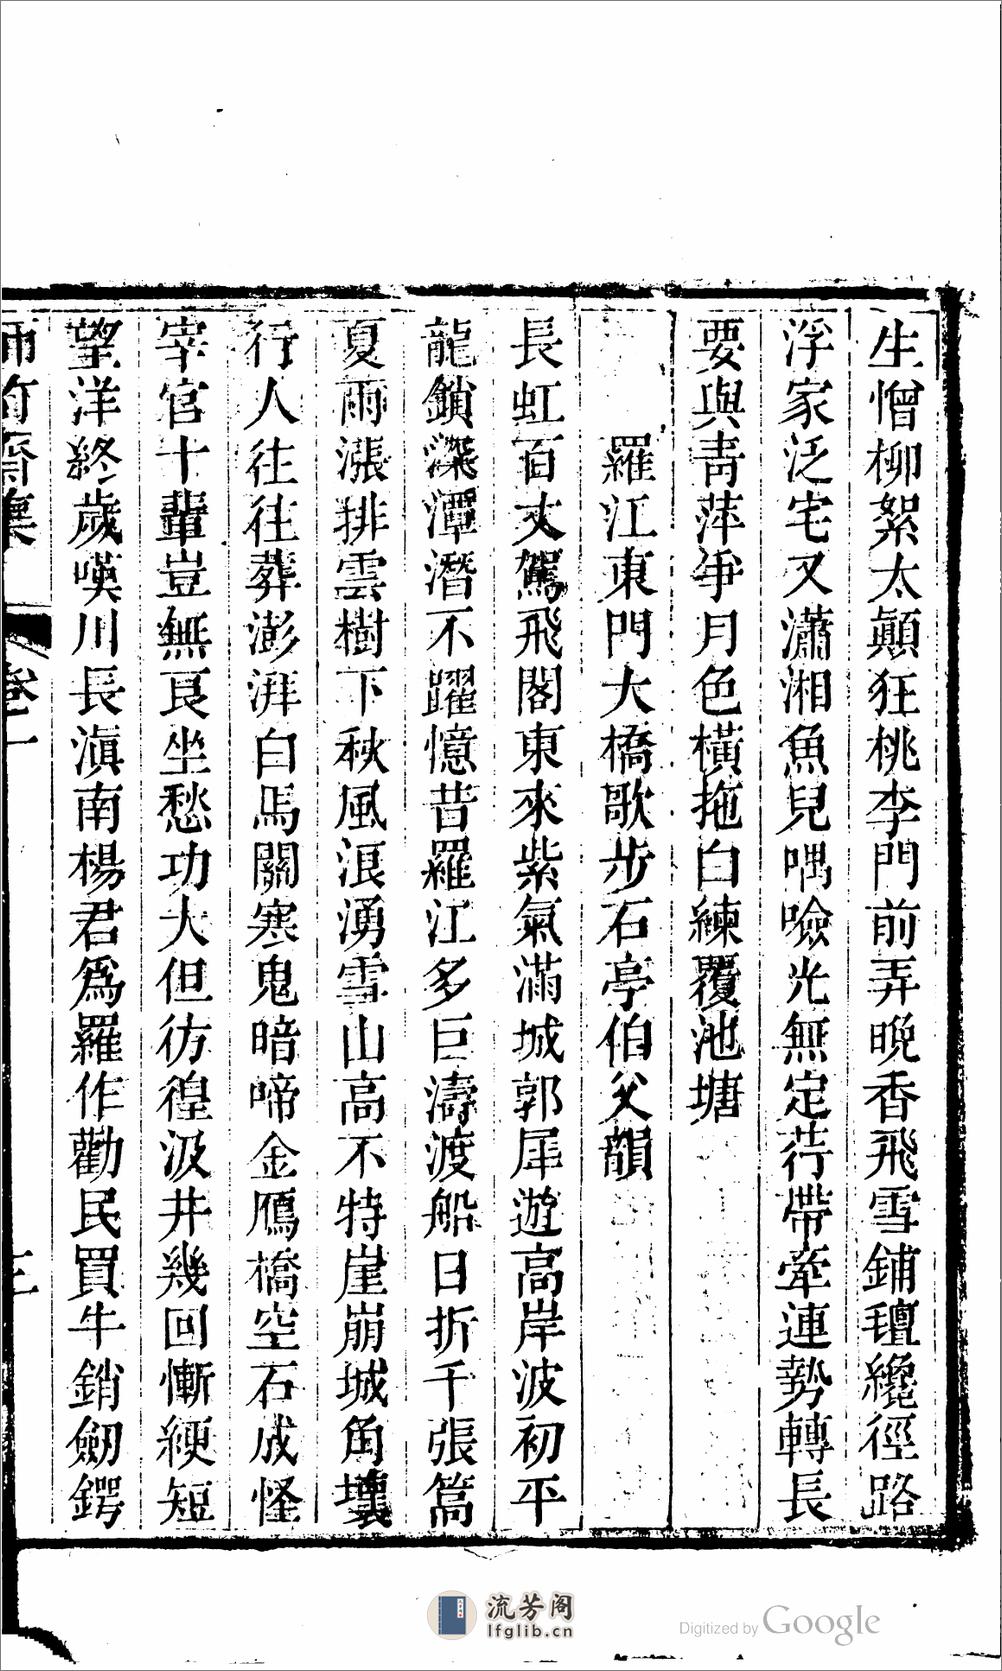 生憎柳絮太顚狂桃李門前弄晚香飛雪鋪氊纔徑路
浮家泛宅又瀟湘魚兒喁噞光無定荇帶牽連勢轉長
要與靑萍爭月色橫拖白練覆池塘
羅江東門大橋歌步石亭伯父韻
長虹百丈駕飛閣東來紫氣滿城郭犀遊高岸波初平
龍鎖深潭潛不躍憶昔羅江多巨濤渡船日折千張篙
夏雨漲排雲樹下秋風浪湧雪山高不特崖崩城角壞
行人往往葬澎湃白馬關寒鬼暗啼金鴈橋空石成怪
宰官十輩豈無良坐愁功大但彷徨汲井幾回慚綆短
望洋終歲嘆川長滇南楊君爲羅作勸民買牛銷劒鍔
齋集
卷一
三
流芳阁
lfglib.cn
Digitized by Google